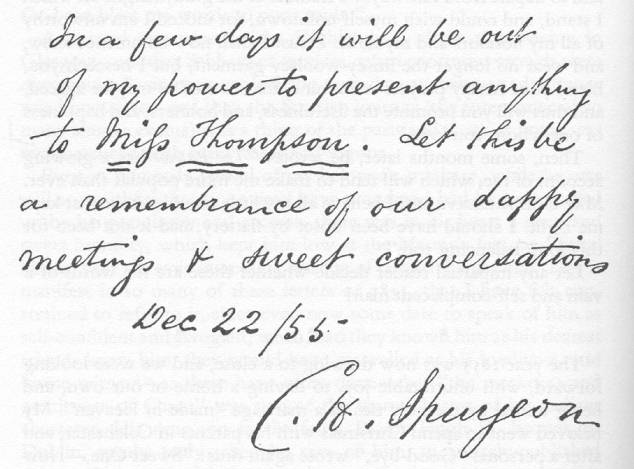 In a few days it will be out
of my power to present anything
to Miss Thompson. Let this be
a remembrance of our happy
meetings & sweet conversations
Dec 22/55-
C H. Spurgeon